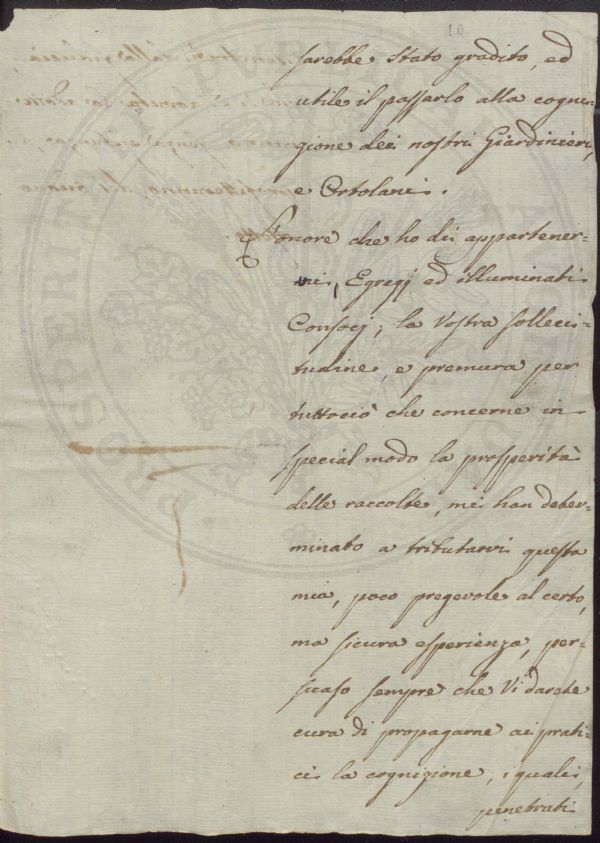 10
sarebbe stato gradito, ed
utile il passarlo alla cogni-
zione dei nostri Giardinieri,
e Ortolani.
L'onore che ho di appartener-
mi, Egregj ed illuminati
Consocj; la Vostra solleci-
tudine, e premura per
tuttociò che concerne in
special modo la prosperità
delle raccolte, mi han deter-
minato a tributarvi questa
mia, poco pregevole al certo,
ma sicura esperienza, per-
suaso sempre che Vi darete
cura di propagarne ai prati-
ci la cognizione; i quali,
penetrati